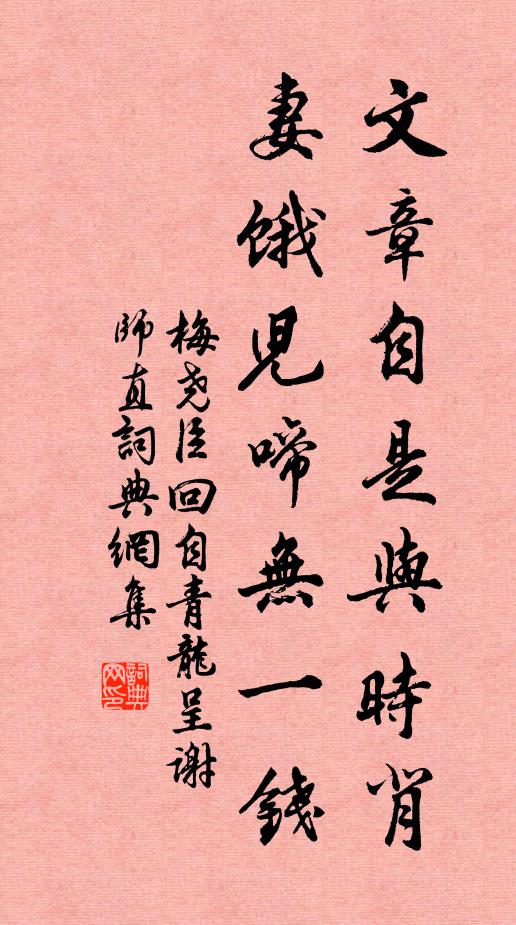 文章自是與時背
妻餓兒啼無一錢
梅堯臣回自青龍呈謝
師直詞典網集
詞典网印